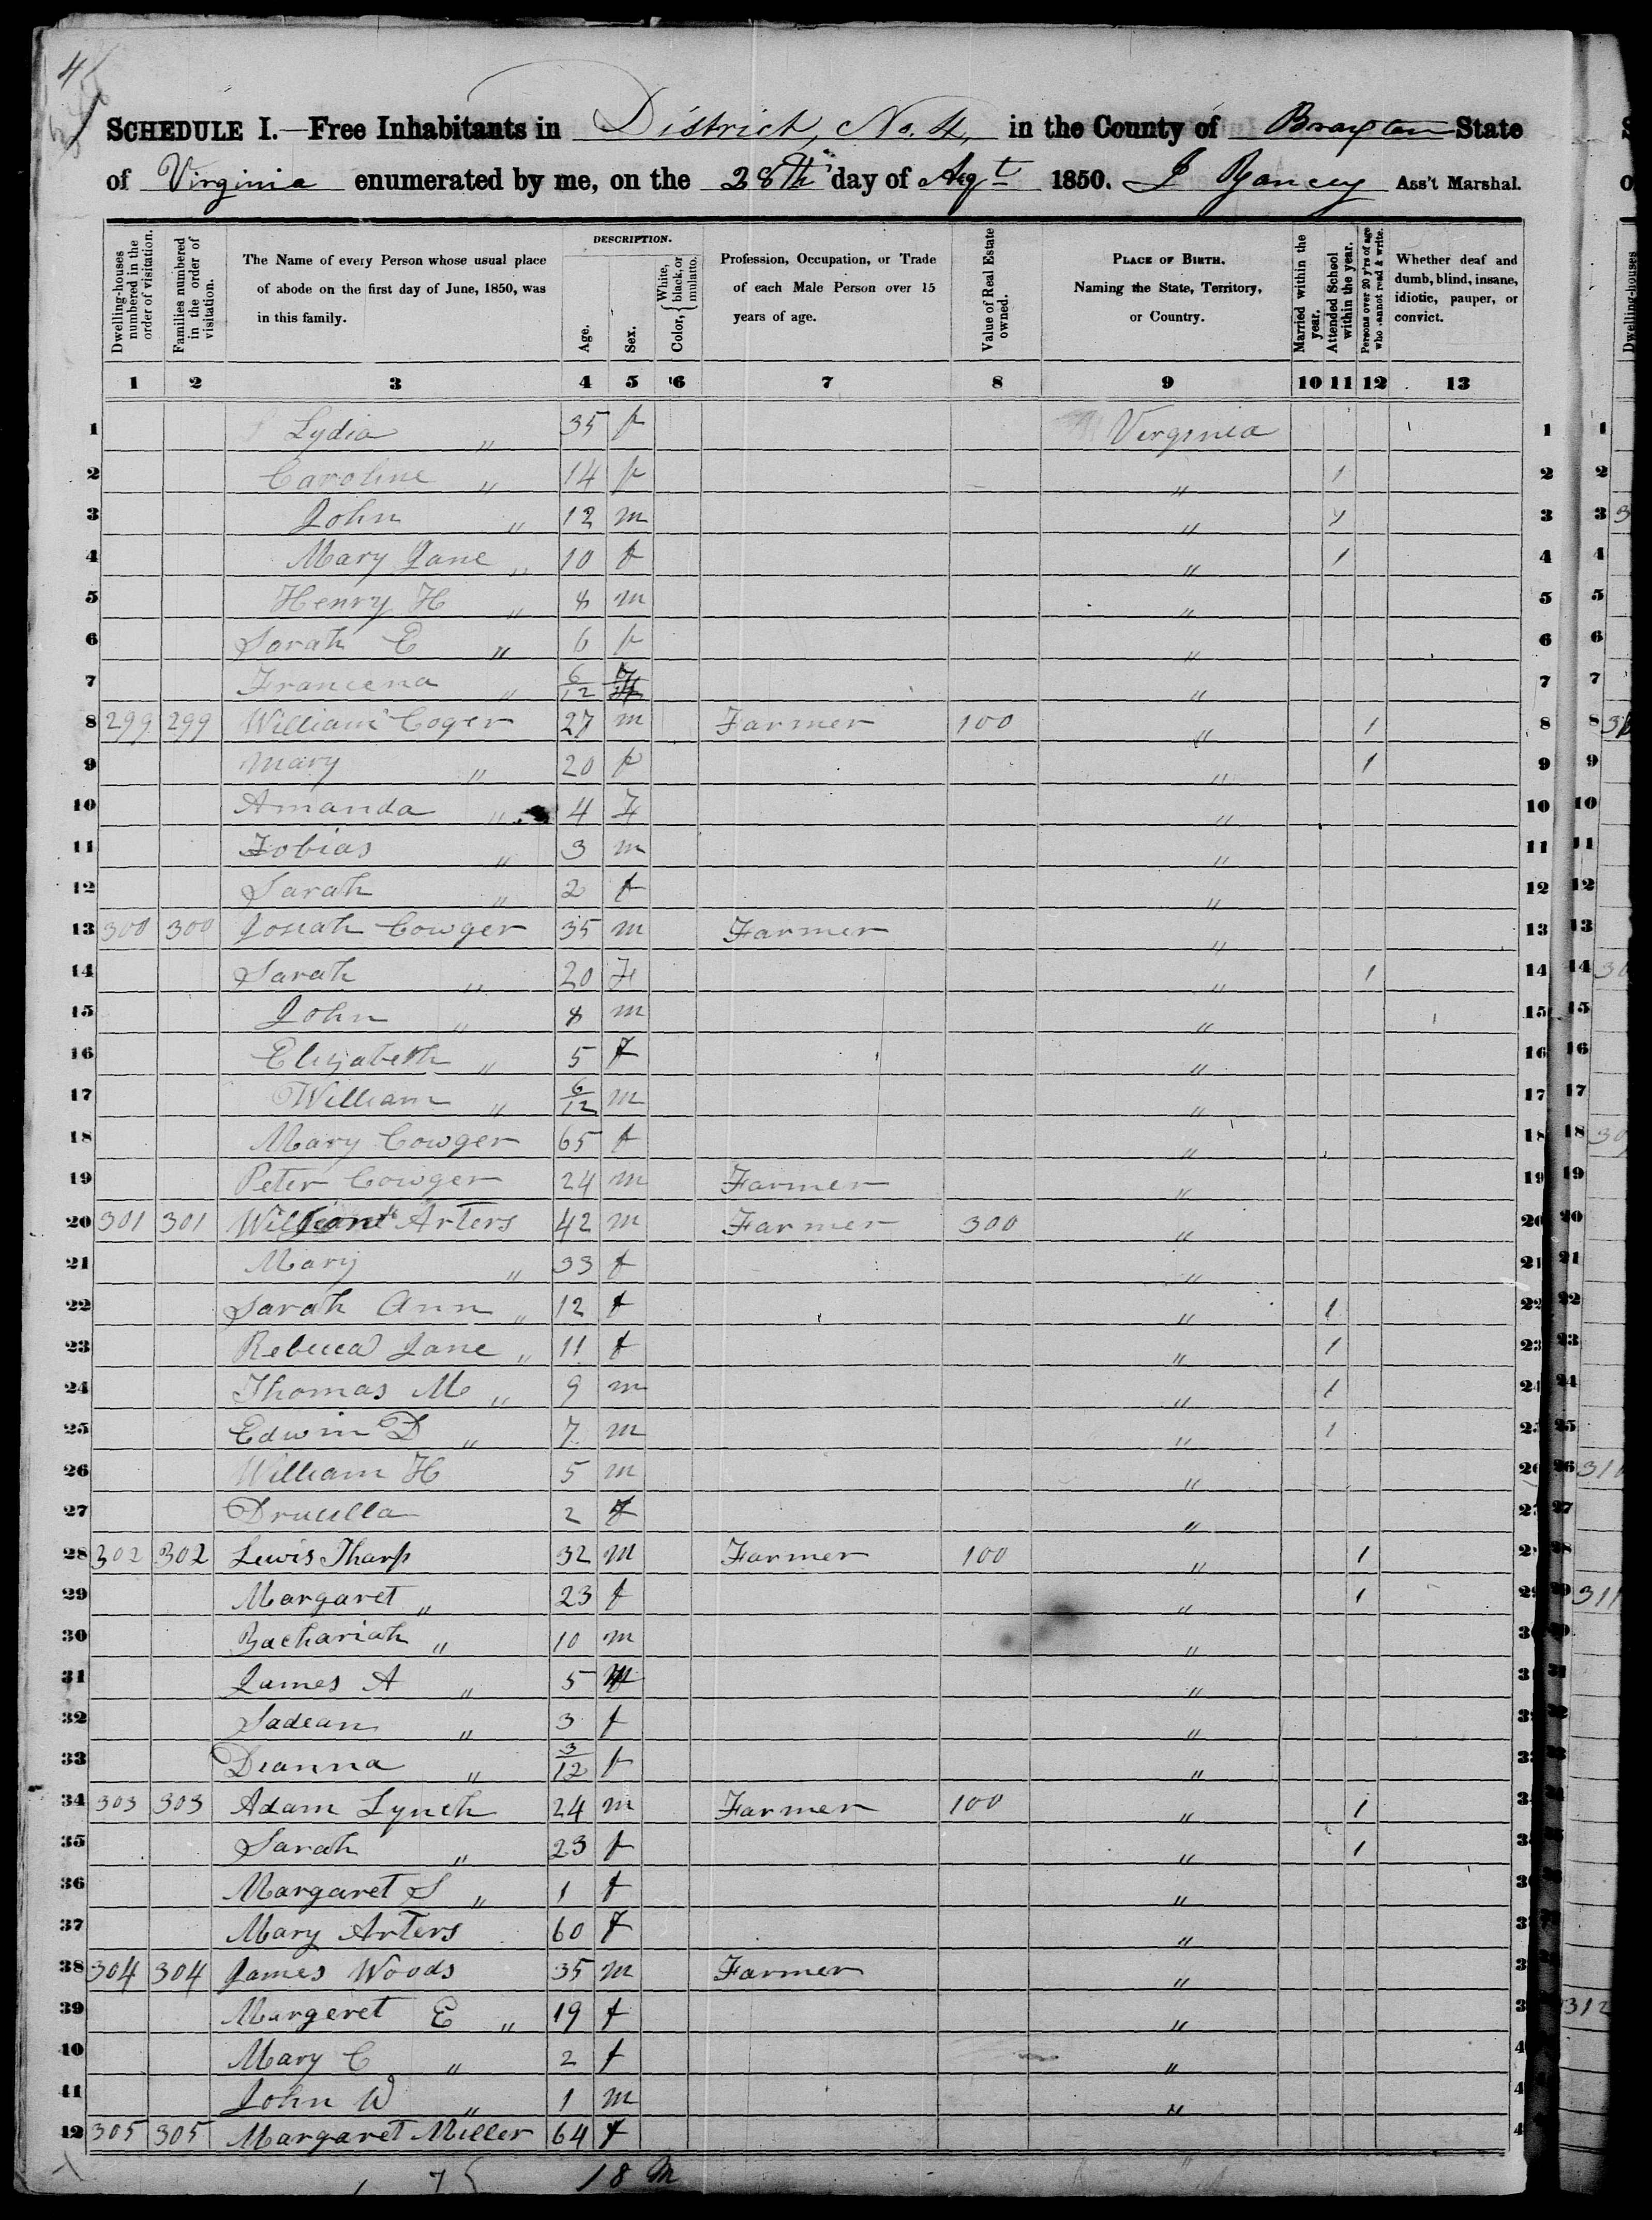 4
SCHEDULE I.—Free Inhabitants in District, No. 4, in the County of Braxton State
of Virginia enumerated by me, on the 28th day of Augt 1850. J Yancey Ass't Marshal.
Dwelling-houses numbered in the order of visitation.
Families numbered in the order of visitation.
The Name of every Person whose usual place of abode on the first day of June, 1850, was in this family.
DESCRIPTION.
Age.
Sex.
Color, { White, black, or mulatto.
Profession, Occupation, or Trade of each Male Person over 15 years of age.
Value of Real Estate owned.
PLACE OF BIRTH. Naming the State, Territory, or Country.
Married within the year.
Attended School within the year.
Persons over 20 y'rs of age who cannot read & write.
Whether deaf and dumb, blind, insane, idiotic, pauper, or convict.
1 2 3 4 5 6 7 8 9 10 11 12 13
1 Lydia " 35 f Virginia 1
2 Caroline " 14 f " 1 2
3 John " 12 m " 1 3
4 Mary Jane " 10 f " 1 4
5 Henry H " 8 m " 5
6 Sarah E " 6 f " 6
7 Francena " 6/12 f " 7
8 299 299 William Coger 27 m Farmer 100 " 1 8
9 Mary " 20 f " 1 9
10 Amanda " 4 f " 10
11 Tobias " 3 m " 11
12 Sarah " 2 f " 12
13 300 300 Josiah Cowger 35 m Farmer " 13
14 Sarah " 20 f " 1 14
15 John " 8 m " 15
16 Elizabeth " 5 f " 16
17 William " 6/12 m " 17
18 Mary Cowger 65 f " 18
19 Peter Cowger 24 m Farmer " 19
20 301 301 William Arters 42 m Farmer 300 " 20
21 Mary " 33 f " 21
22 Sarah Ann " 12 f " 1 22
23 Rebecca Jane " 11 f " 1 23
24 Thomas M " 9 m " 1 24
25 Edwin D " 7 m " 1 25
26 William H 5 m " 26
27 Drucilla 2 f " 27
28 302 302 Lewis Tharp 32 m Farmer 100 " 1
29 Margaret " 23 f " 1
30 Zachariah " 10 m "
31 James A " 5 m "
32 Sadean " 3 f "
33 Deanna " 3/12 f "
34 303 303 Adam Lynch 24 m Farmer 100 " 1
35 Sarah " 23 f " 1
36 Margaret S " 1 f "
37 Mary Arters 60 f "
38 304 304 James Woods 35 m Farmer "
39 Margeret E " 19 f "
40 Mary C " 2 f "
41 John W " 1 m "
42 305 305 Margaret Miller 64 f
18 m